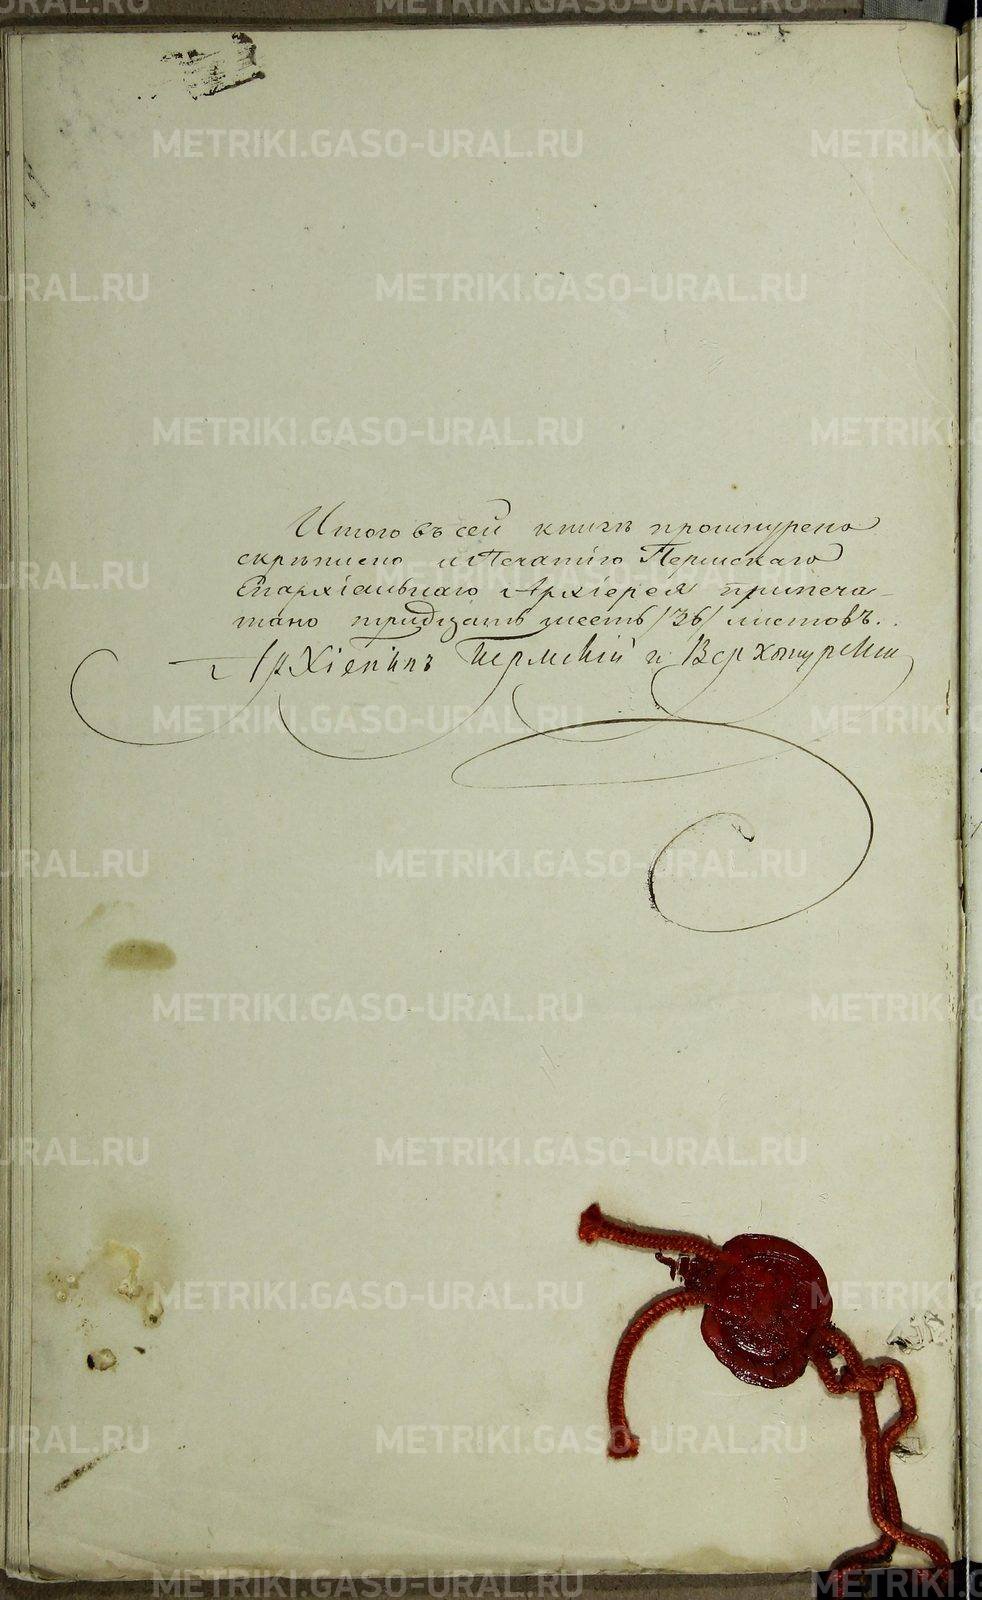 Итого въ сей книгѣ прошнурено
скрѣплено и печатiю Пермскаго
Епархiальнаго Архiерея припеча-
тано тридцать шесть /36/ листовъ.
Пермскiй и Верхотурскiй
METRIKI.GASO-URAL.RU